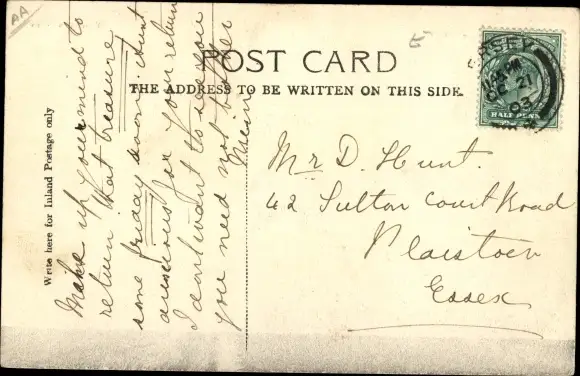 AA
POST CARD
THE ADDRESS TO BE WRITTEN ON THIS SIDE.
Write here for Inland Postage only
Make up your mind to
return that treasure
some friday dont count
anxious for your return
I dont want to see you
you need not bother
Mr D. Hunt.
42 Sutton Court Road
Plaistow
Essex
JERSEY
OC 21
03
HALFPENNY